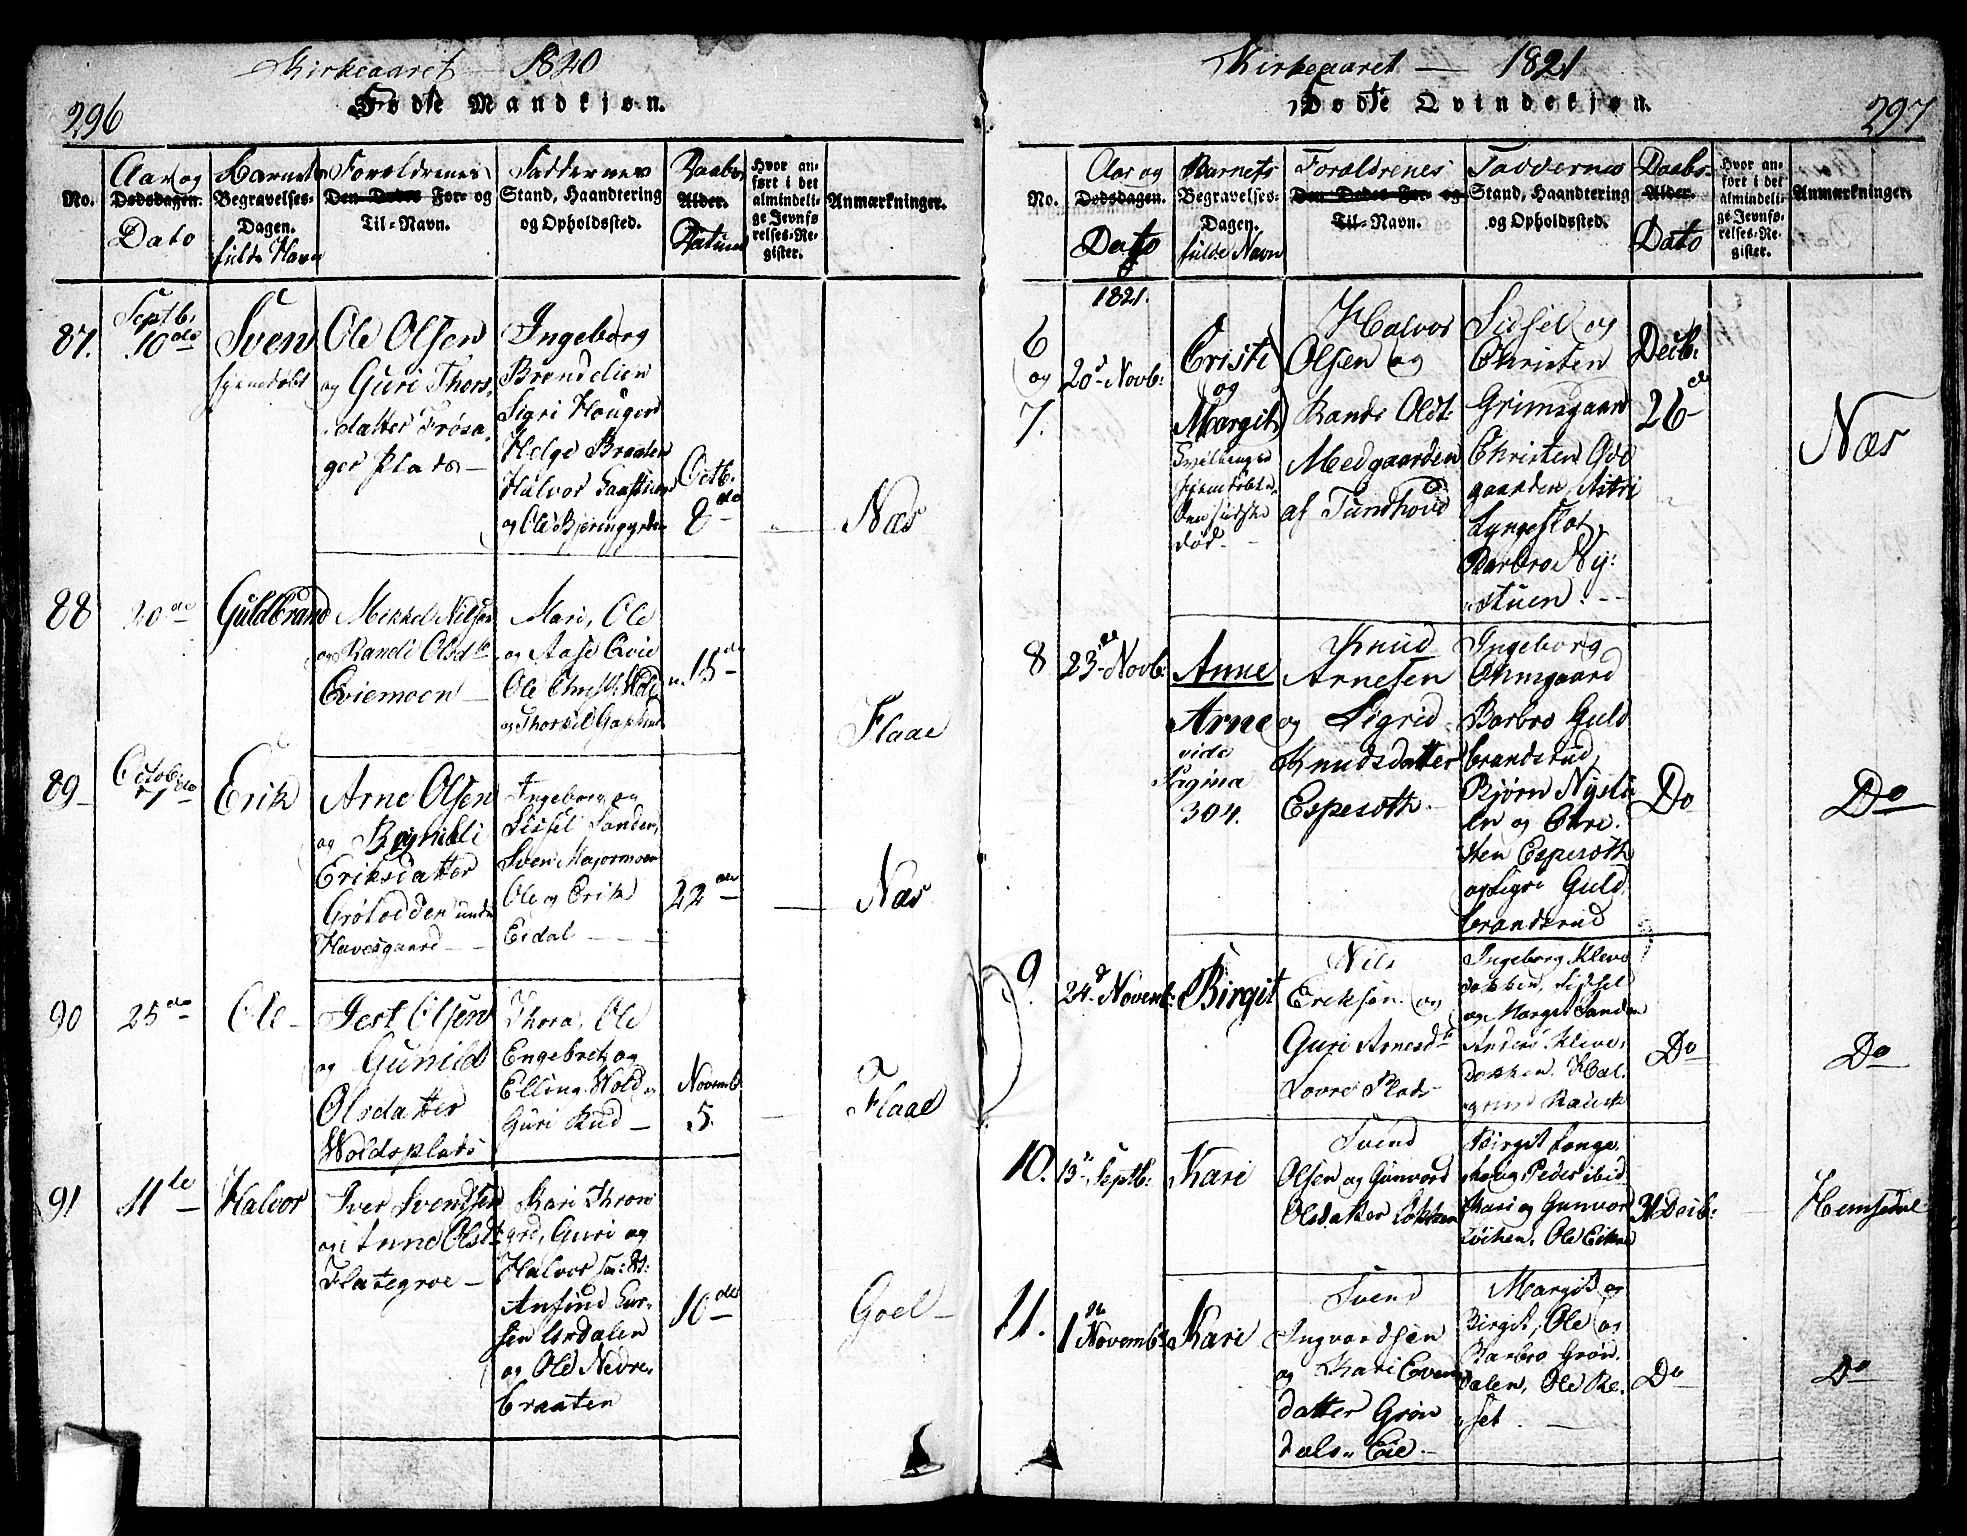 Kirkeaaret — 1820
296
Fødte Mandkjøn.
No.
Aar og
Dødsdagen.
Dato
Barnets
Begravelses-
Dagen.
fulde Navn
Forældrenes
Den Dødes For- og
Til-Navn.
Faddernes
Stand, Haandtering
og Opholdssted.
Daabs
Alder.
Datum
Hvor an-
ført i det
almindeli-
ge Jevnfø
relses-Re-
gister.
Anmærkninger.
87.
Septb:
10de
Sven
hjemedøbt
Ole Olsen
og Guri Thors
datter Frøsa-
ger Plads —
Ingeborg
Brendelien
Sigri Houger
Helge Braaten
Halvor
og Ole
Octb:
8de
Næs
88
20de
Guldbrand
Mekkel Nilsen
og Randi Olsd.
Eviemoen —
Mari, Ole
og Aase Qvie
Ole
og Thorkil
15de
Flaae
89
Octob:
Erik
Arne Olsen
og
Eriksdatter
Grøtodden under
Havesgaard —
Ingeborg og
Sissel Sander,
Sven
Ole og Erik
Eidal —
22de
Næs
90
25de
Ole
Jest Olsen
og Gunild
Olsdatter
Woldsplads
Thora, Ole
Engebret, og
Elling Wold og
Guri Rud —
Novemb
5.
Flaae
91
11te
Halvor
Iver Svendsen
og Anne Olsd
Flategroe —
Kari Thron
grd, Guri og
Halvor
Anfind Gur-
sen Urdalen
og Ole Nedre
braaten
10de
Goel —
Kirkeaaret — 1821
Fødte Qvindekjøn.
297
No.
Aar og
Dødsdagen.
Dato
Barnets
Begravelses-
Dagen.
fulde Navn
Forældrenes
Den Dødes For- og
Til-Navn.
Faddernes
Stand, Haandtering
og Opholdssted.
Daabs-
Alder.
Dato
Hvor an-
ført i det
almindeli-
ge Jevnfø-
relses-Re-
gister.
Anmærkninger.
1821.
6
og
7.
20d Novb:
Cristi
og
Margit
Tvillinger
hjemdøbte,
den sidste
død. —
Halvor
Olsen og
Randi Oldt:
Medgaarden
af Tunhovd
Sidsel og
Christen
Grimsgaard
Christen
gaarden, Astri
Lyngeslot,
Barbro Ny:
stuen. —
Decb:
26
Næs
8
23de Novb:
Anne
Arne
vide
Pagina
304.
Knud
Arnesen
og Sigrid
Knudsdatter
Esperoth.
Ingeborg
Grimsgaard
Barbro Guld
brandsrud,
Bjørn Nystu
en og Chri-
sten Esperoth
og Sigri Guld
brandsrud
Do
Do
9.
24d Novemb:
Birgit
Nils
Eriksen og
Guri Arnesd
Lovre Plads
Ingeborg Kleve
dokken, Sidsel
og Marget Sanden
Anders Kleve-
dokken.
Do
Do
10.
13de Septb:
Kari
Svend
Olsen og Gunvord
Olsdatter Løkken
Birgit Lange
Peder ibid
Kari og Gunvor
Løkken, Ole
31 Decb:
Hemsedal
11.
1ste
Novemb:
Kari
Svend
Ingvardsen
og Kari Even
datter Grøn
dals Eie. —
Margit og
Birgit, Ole og
Barbro Grøn
dalen, Ole Re-
set. —
Do
Do